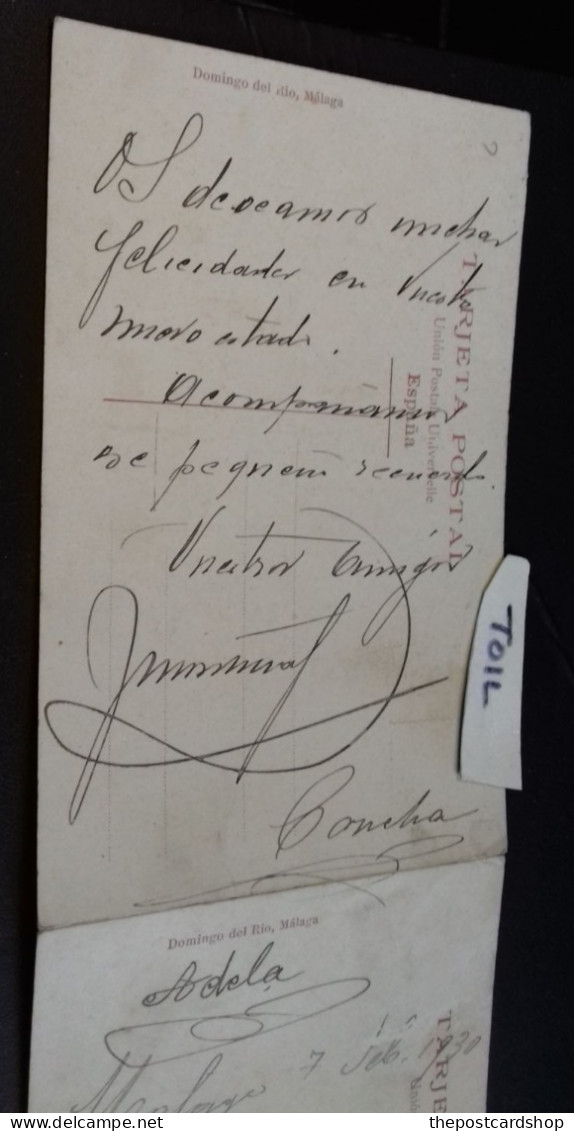 Domingo del Rio, Málaga
Os deseamos muchas
felicidades en Vuestro
nuevo estado.
Acompañamos
ese pequeño recuerdo
Vuestros Amigos
Concha
TARJETA POSTAL
Unión Postale Universelle
España
TOIL
Domingo del Rio, Málaga
Adela
Malaga 7 Feb. 1930
TARJE
Unión
thepostcardshop